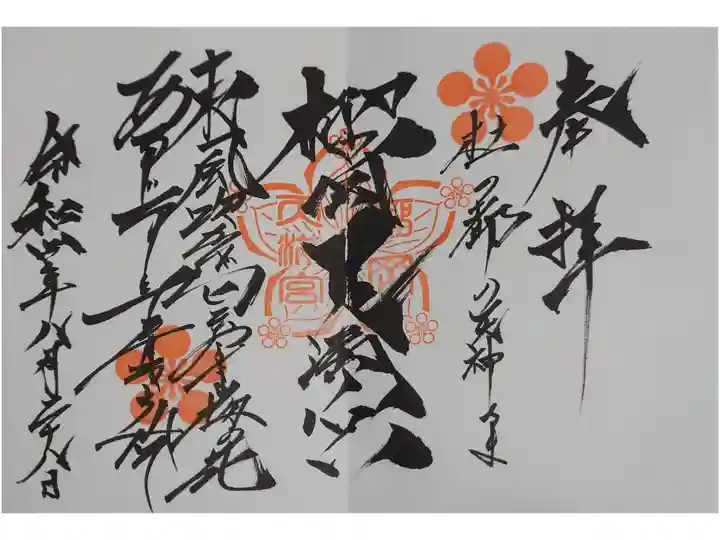 奉拝
杜の都の天神さま
榴岡天満宮
東風吹かば匂ひおこせよ梅の花
あるじなしとて春な忘れそ
令和四年八月二十八日
榴岡
天満宮